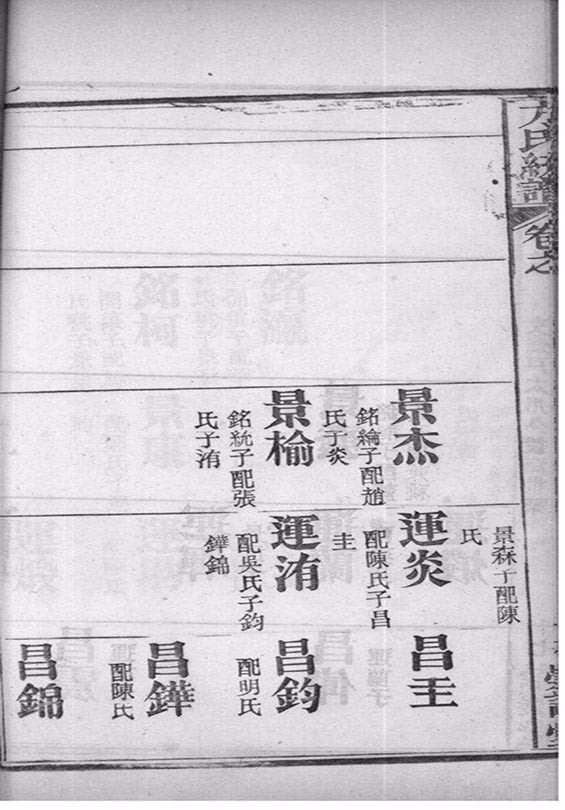 方氏統譜
卷之
景杰
銘綸子配趙
氏子炎
景榆
銘統子配張
氏子洧
景森子配陳
氏
運炎
配陳氏子昌
圭
運洧
配吳氏子鈞
鏵錦
昌圭
昌鈞
配明氏
昌鏵
配陳氏
昌錦